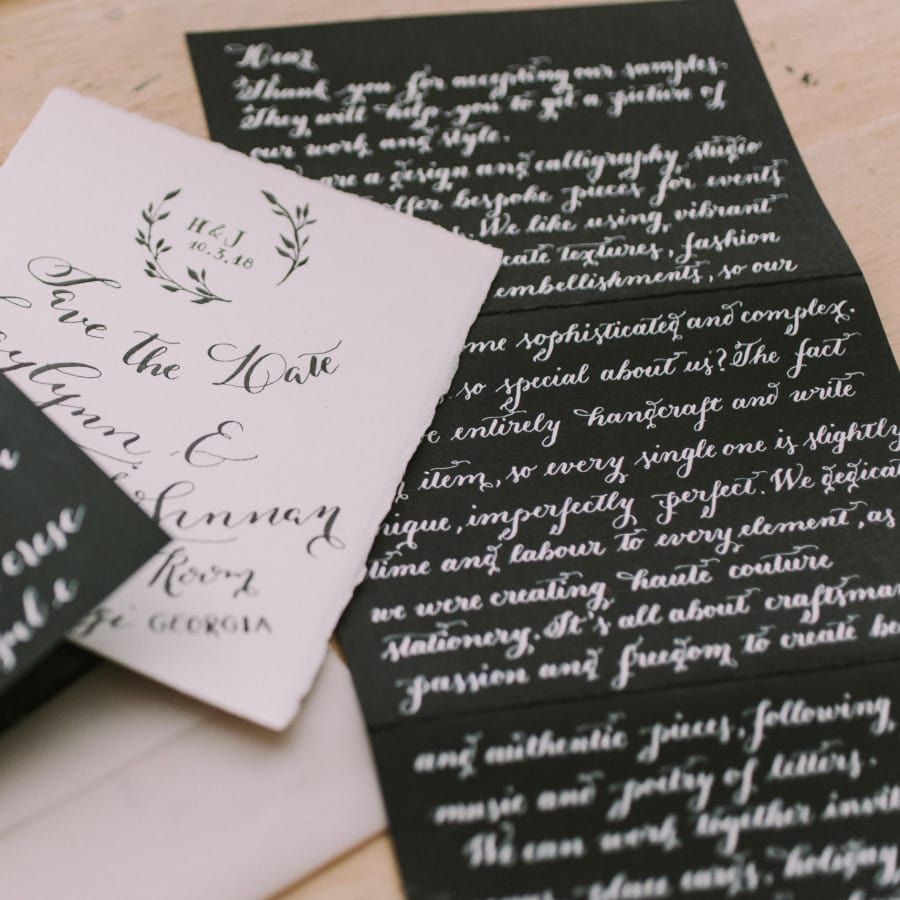 H & J
10.3.18
Save the Date
&
Room
GEORGIA
Dear
Thank you for accepting our samples.
They will help you to get a picture of
our work and style.
are a design and calligraphy studio
offer bespoke pieces for events
We like using vibrant
textures, fashion
embellishments, so our
sophisticated and complex.
so special about us? The fact
entirely handcraft and write
item, so every single one is slightly
imperfectly perfect. We
time and labour to every element, as
we were creating haute couture
stationery. It's all about
passion and freedom to create
and authentic pieces, following
music and poetry of letters.
We can work together
cards, holiday